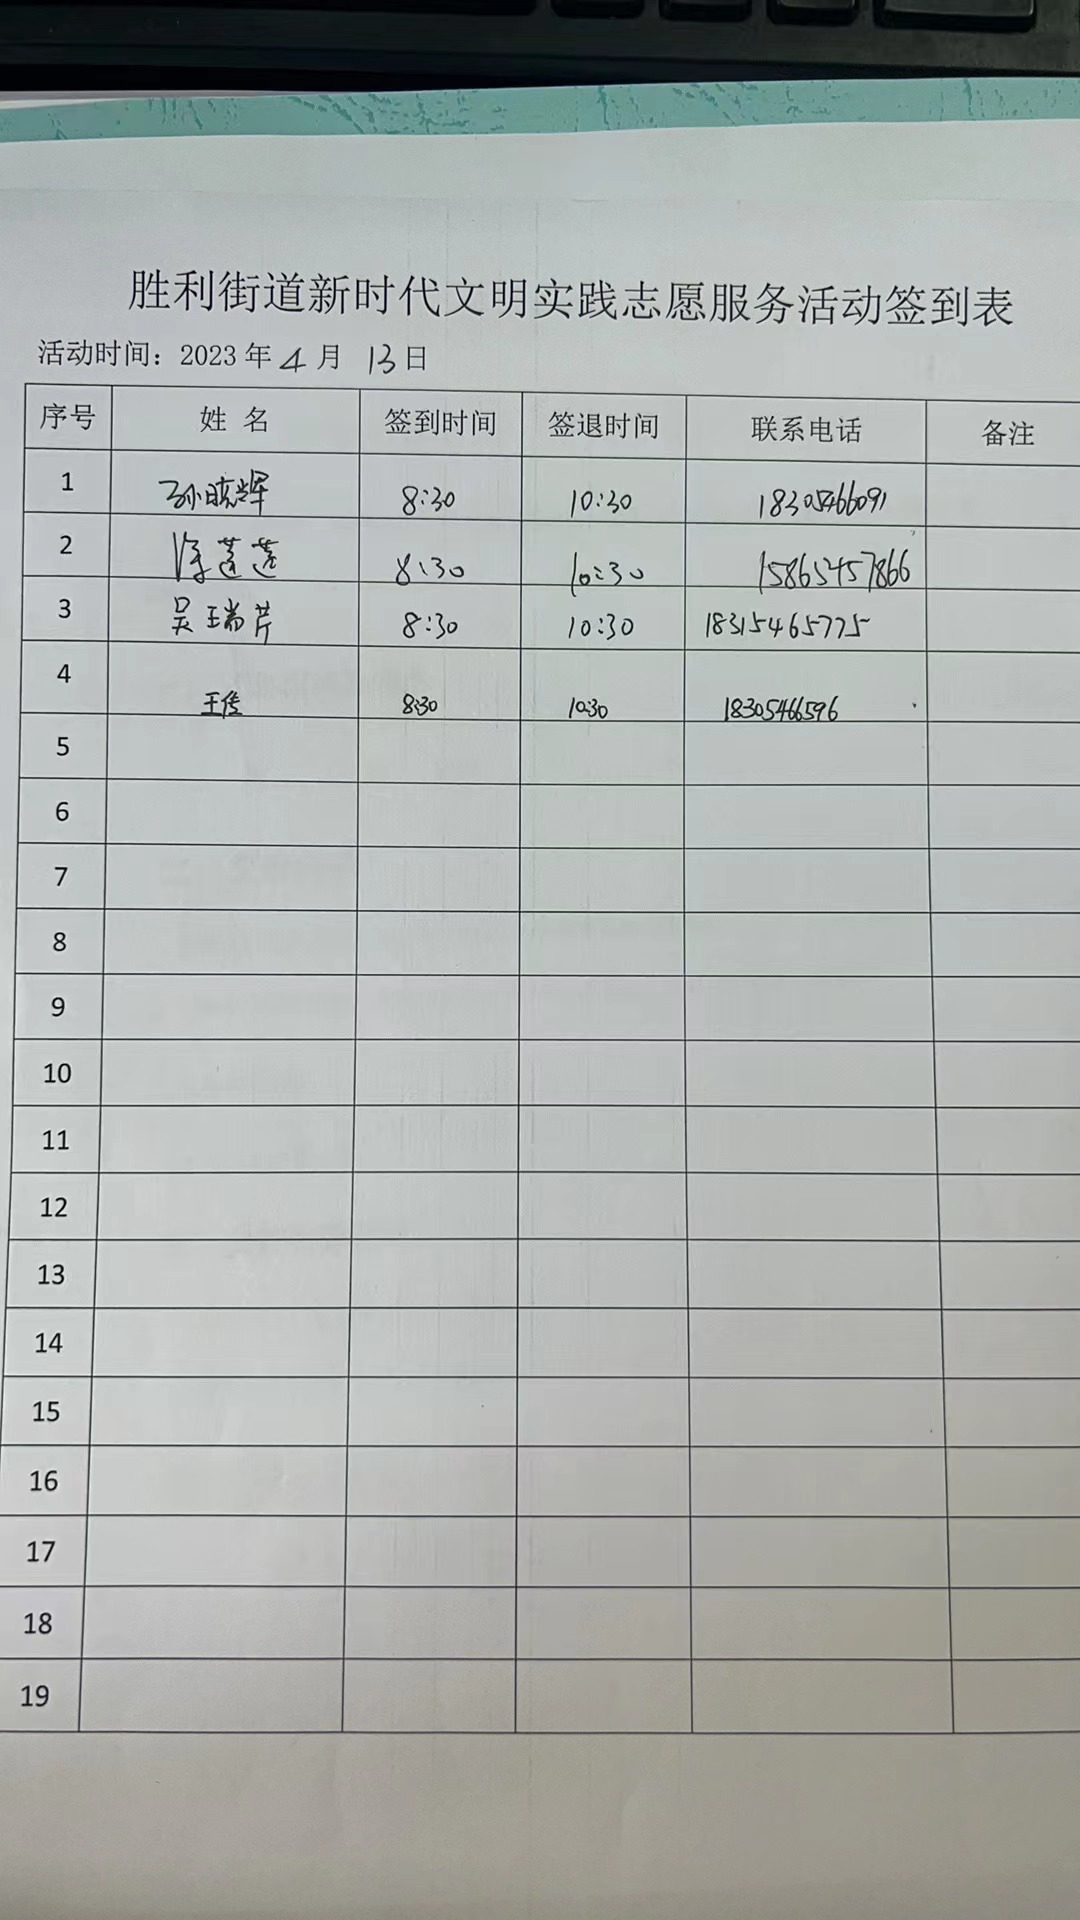 胜利街道新时代文明实践志愿服务活动签到表
活动时间：2023 年 4 月 13 日
序号 姓 名 签到时间 签退时间 联系电话 备注
1 孙晓辉 8:30 10:30 18305466091
2 徐莲莲 8:30 10:30 15865457866
3 吴瑞芹 8:30 10:30 18315465775
4 王传 8:30 10:30 18305466596
5
6
7
8
9
10
11
12
13
14
15
16
17
18
19